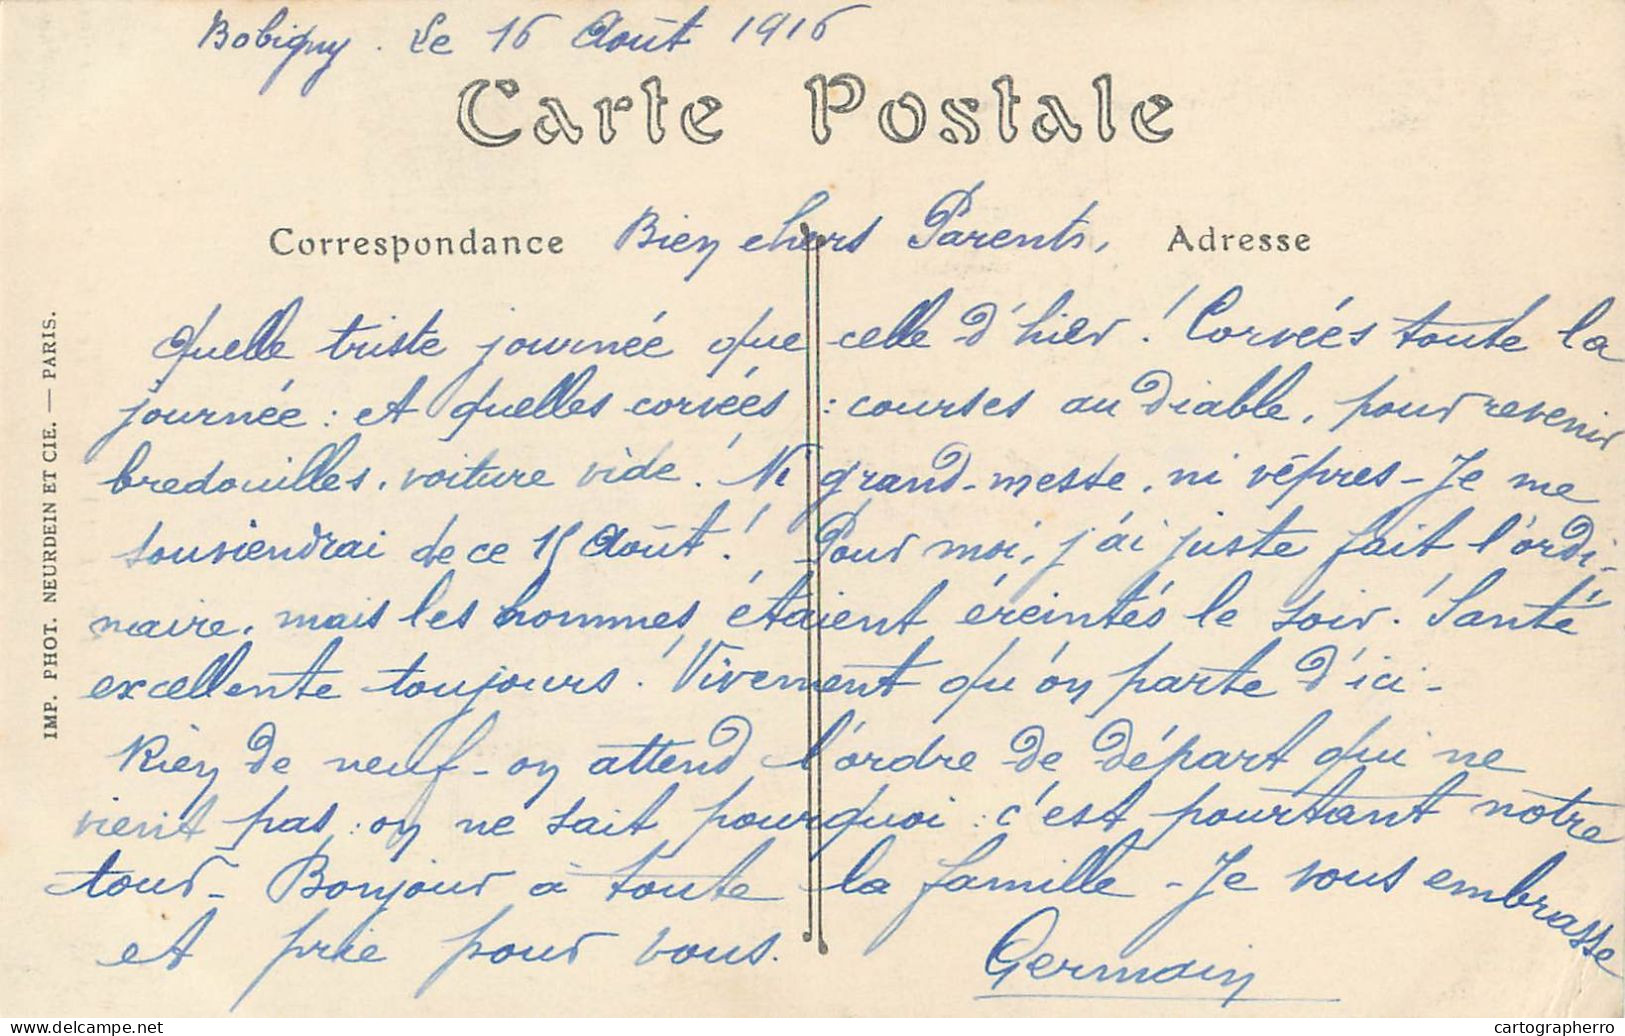 Bobigny. Le 16 Août 1916
Carte Postale
Correspondance
Bien chers Parents,
Adresse
Quelle triste journée que celle d'hier ! Corvées toute la
journée : et quelles corvées : courses au diable, pour revenir
bredouilles, voiture vide ! Ni grand-messe, ni vêpres - Je me
souviendrai de ce 15 Août ! Pour moi, j'ai juste fait l'ordi-
naire, mais les hommes étaient éreintés le soir. Santé
excellente toujours ! Vivement qu'on parte d'ici -
Rien de neuf - on attend l'ordre de départ qui ne
vient pas : on ne sait pourquoi : c'est pourtant notre
tour - Bonjour à toute la famille - Je vous embrasse
et prie pour vous.
Germain
IMP. PHOT. NEURDEIN ET CIE. — PARIS.
delcampe.net
cartographerro